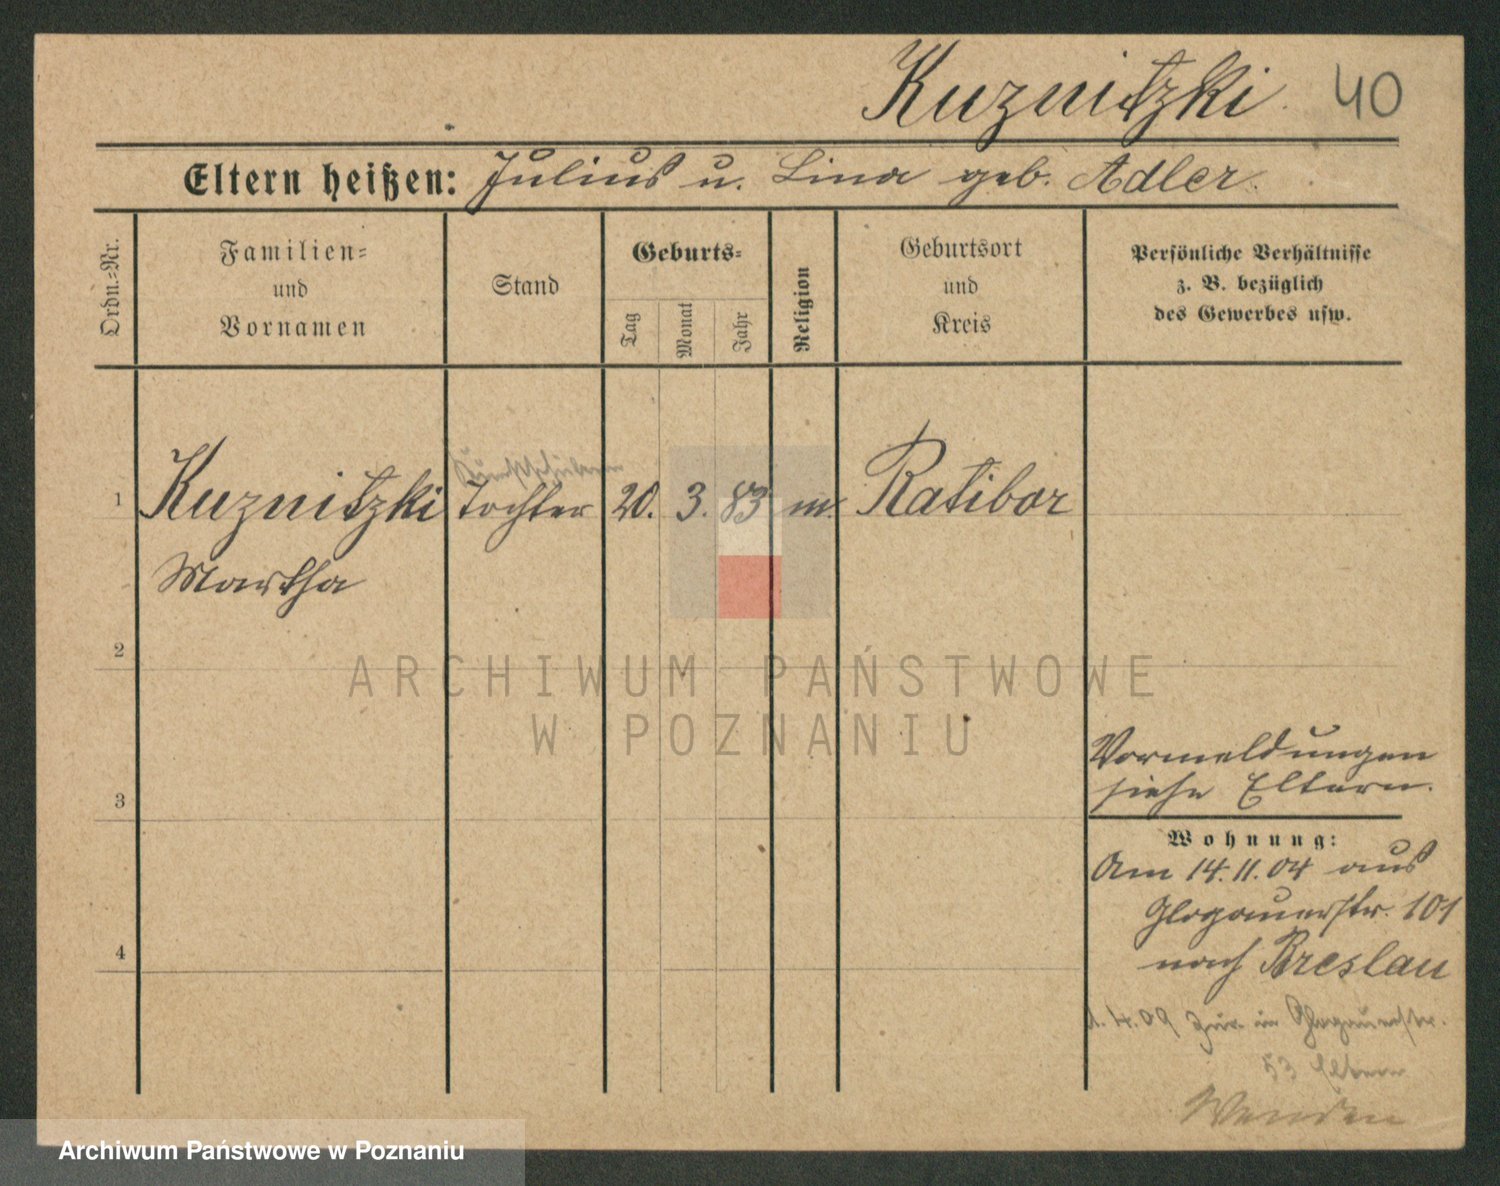 Kuznitzki 40
Eltern heißen: Julius u. Lina geb. Adler.
Ordn.=Nr.
Familien=
und
Vornamen
Stand
Geburts=
Tag
Monat
Jahr
Religion
Geburtsort
und
Kreis
Persönliche Verhältnisse
z. B. bezüglich
des Gewerbes usw.
1 Kuznitzki Tochter 20. 3. 83 m. Ratibor
Martha
2
ARCHIWUM PAŃSTWOWE
W POZNANIU
Vormeldungen
siehe Eltern.
3
Wohnung:
Am 14.11.04 aus
Glogauerstr. 101
4
nach Breslau
1.4.09 zur. in Glogauerstr.
53 Eltern
Wenden
Archiwum Państwowe w Poznaniu